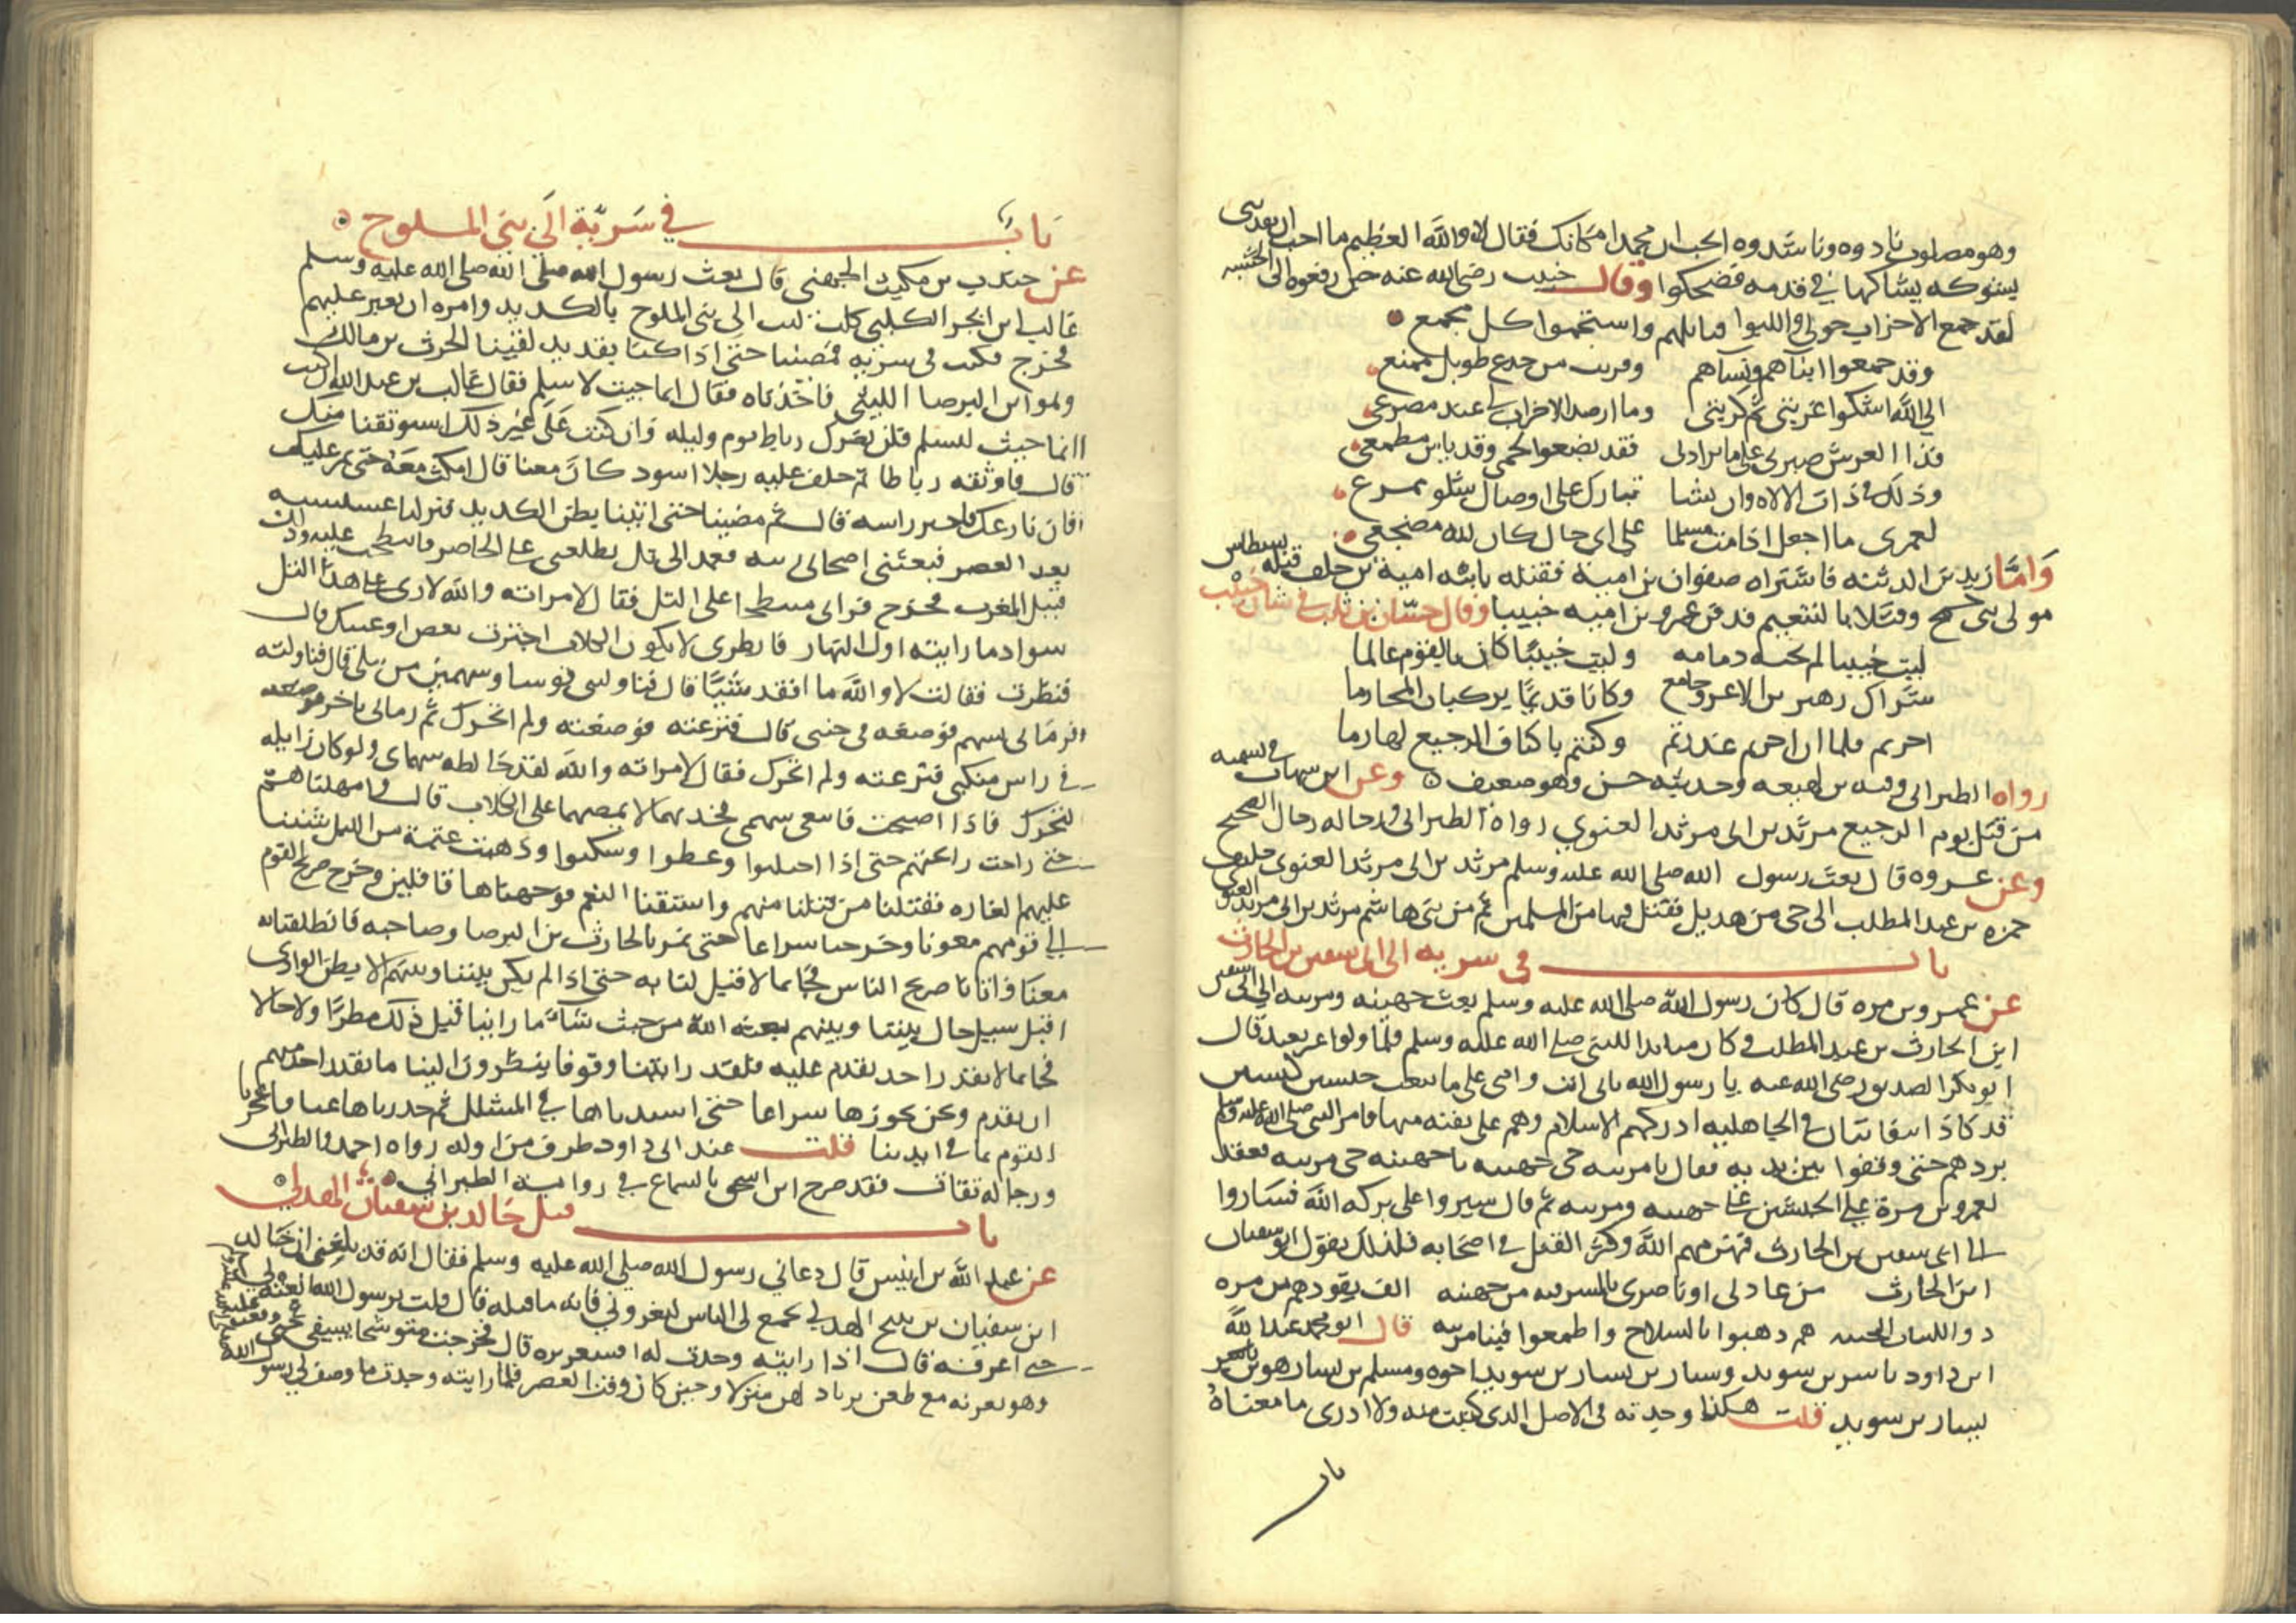 وهو مصلوب نادوه وناشدوه اتحب ان محمدا مكانك فقال لا والله العظيم ما احب ان يفديني
بشوكه يشاكها في قدمه فضحكوا وقال خبيب رضي الله عنه حين رفعوه الى الخشبه
لقد جمع الاحزاب حولي والبوا قبائلهم واستجمعوا كل مجمع
وقد جمعوا ابناهم ونساهم وقربت من جذع طويل ممنع
الى الله اشكوا غربتي ثم كربتي وما ارصد الاحزاب لي عند مصرعي
فذا العرش صبرني على ما يراد بي فقد بضعوا لحمي وقد ياس مطمعي
وذلك في ذات الاله وان يشا يبارك على اوصال شلو ممزع
لعمري ما احفل اذا مت مسلما على اي حال كان لله مضجعي
واما زيد بن الدثنه فاشتراه صفوان بن امية فقتله بابيه امية بن خلف قتله نسطاس
مولى بني جمح وقتلا بالتنعيم فدفن عمرو بن اميه خبيبا وقال حسان بن ثابت في شان خبيب
ليت خبيبا لم تخنه ذمامه وليت خبيبا كان بالقوم عالما
شراك زهير بن الاغر وجامع وكانا قديما يركبان المحارما
اجرتم فلما ان اجرتم غدرتم وكنتم باكناف الرجيع لهازما
رواه الطبراني وفيه بن لهيعه وحديثه حسن وفيه ضعف وعن ابن شهاب في تسميه
من قتل يوم الرجيع مرثد بن ابي مرثد الغنوي رواه الطبراني ورجاله رجال الصحيح
وعن عروه قال بعث رسول الله صلى الله عليه وسلم مرثد بن ابي مرثد الغنوي حليف
حمزه بن عبد المطلب الى حي من هذيل فقتل فيها من المسلمين ثم من بني هاشم مرثد بن ابي مرثد الغنوي
باب في سريه الى ابي سفين بن الحارث
عن عمرو بن مره قال كان رسول الله صلى الله عليه وسلم بعث جهينه ومزينه الى ابي سفين
ابن الحارث بن عبد المطلب وكان منابذا للنبي صلى الله عليه وسلم فلما ولوا غير بعيد قال
ابو بكر الصديق رضي الله عنه يا رسول الله بابي انت وامي على ما تبعث
قد كادا يتفانيان في الجاهليه ادركهم الاسلام وهم على بقيه منها فامر النبي صلى الله عليه وسلم
بردهم حتى وقفوا بين يديه فقال يا مزينه حي جهينه يا جهينه حي مزينه فعقد
لعمرو بن مرة على الجيشين على جهينه ومزينه ثم قال سيروا على بركه الله فساروا
الى ابي سفين بن الحارث فهزمهم الله وكثر القتل في اصحابه فلذلك يقول ابو سفيان
ابن الحارث من عاد لي او ناصري بالسريه من جهينه الف يقودهم بن مره
ذو اللسان هم ذهبوا بالسلاح واطمعوا فينا مزينه قال ابو محمد عبد الله
ابن داود ياسر بن سويد وسيار بن يسار بن سويد اخوه ومسلم بن يسار هو بن ياسر
يسار بن سويد قلت هكذا وجدته في الاصل الذي كتبت منه ولا ادري ما معناه
باب
باب في سرية الى بني الملوح
عن جندب بن مكيث الجهني قال بعث رسول الله صلى الله صلى الله عليه وسلم
غالب ابن ابجر الكلبي كلب ليث الى بني الملوح بالكديد وامره ان يغير عليهم
فخرج فكنت في سريه فمضينا حتى اذا كنا بقديد لقينا الحرث بن مالك
وهو ابن البرصا الليثي فاخذناه فقال انما جيت لاسلم فقال غالب بن عبد الله ان كنت
انما جيت لتسلم فلن يضرك رباط يوم وليله وان كنت على غير ذلك استوثقنا منك
قال فاوثقه رباطا ثم خلف عليه رجلا اسود كان معنا قال امكث معه حتى نمر عليك
فان نازعك فاحتز راسه قال ثم مضينا حتى اتينا بطن الكديد فنزلنا عشيشيه
بعد العصر فبعثني اصحابي ربيه فعمدت الى تل يطلعني على الحاضر فانبطحت عليه وذلك
قبل المغرب فخرج فراني منبطحا على التل فقال لامراته والله لارى على هذا التل
سوادا ما رايته اول النهار فانظري لا يكون الكلاب اجترت بعض اوعيتك قال
فنظرت فقالت لا والله ما افقد شيئا قال فناوليني قوسا وسهمين من نبلي قال فناولته
فرماني بسهم فوضعه في جنبي قال فنزعته فوضعته ولم اتحرك ثم رماني باخر فوضعه
في راس منكبي فنزعته ولم اتحرك فقال لامراته والله لقد خالطه سهماي ولو كان زايله
لتحرك فاذا اصبحت فابتغي سهمي فخذيهما لا يمضغهما على الكلاب قال وامهلناهم
حتى راحت رايحتهم حتى اذا احتلبوا وعطنوا وسكنوا وذهبت عتمة من الليل شننا
عليهم الغاره فقتلنا من قتلنا منهم واستقنا النعم فوجهناها قافلين وخرج صريخ القوم
الى قومهم مغوثا وخرجنا سراعا حتى نمر بالحارث بن البرصا وصاحبه فانطلقنا به
معنا واتانا صريخ الناس فجانا ما لا قبل لنا به حتى اذا لم يكن بيننا وبينهم الا بطن الوادي
اقبل سيل حال بيننا وبينهم بعثه الله من حيث شاء ما راينا قبل ذلك مطرا ولا حالا
فجا بما لا يقدر احد يقدم عليه فلقد رايتنا وقوفا ينظرون الينا ما يقدر احد منهم
ان يقدم ونحن نحوزها سراعا حتى اسندناها في المشلل ثم حدرناها عنا فاعجزنا
القوم بما في ايدينا قلت عند ابي داود طرف من اوله رواه احمد والطبراني
ورجاله ثقات فقد صرح ابن اسحق بالسماع في رواية الطبراني
باب قتل خالد بن سفيان الهذلي
عن عبد الله بن انيس قال دعاني رسول الله صلى الله عليه وسلم فقال انه قد بلغني ان خالد
ابن سفيان بن نبيح الهذلي يجمع لي الناس ليغزوني فاته فاقتله قال قلت يرسول الله انعته لي
حتى اعرفه قال اذا رايته وجدت له اقشعريره قال فخرجت متوشحا بسيفي حتى وقعت عليه
وهو بعرنه مع ظعن يرتاد لهن منزلا وحين كان وقت العصر فلما رايته وجدت ما وصف لي رسول الله